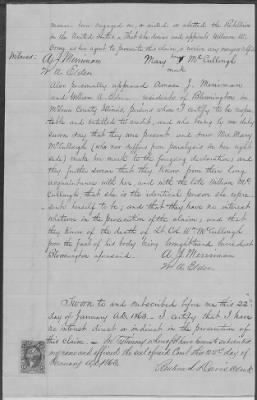 never been engaged in, or aided or abetted the Rebellion
in the United States &, that she hereby appoints William W.
as her agent to prosecute this claim, & receive any
Witness: A J Merriman Mary McCullough
W A Elder mark
Also personally appeared Amasa J. Merriman
and William A. Elder, residents of Bloomington in
McLean County Illinois, persons whom I certify to be respec-
table and entitled to credit, and who being by me duly
sworn say that they are present and saw Mrs. Mary
McCullough (who now suffers from paralysis in her right
side) make her mark to the foregoing declaration; and
they further swear that they know from their long
acquaintance with her, and with the late William Mc
Cullough, that she is the identical person she repre
sents herself to be; and that they have no interest
whatever in the prosecution of this claim; and that
they know of the death of Lt. Col. Wm. McCullough
from the fact of his body being brought and buried at
Bloomington aforesaid. A. J. Merriman
W. A. Elder
Sworn to and subscribed before me this 22nd
day of January A.D. 1863. I certify that I have
no interest direct or indirect in the prosecution of
this claim. In testimony whereof I have hereunto subscribed
my name and affixed the seal of said Court this 22nd day of
January AD 1863.
Clerk